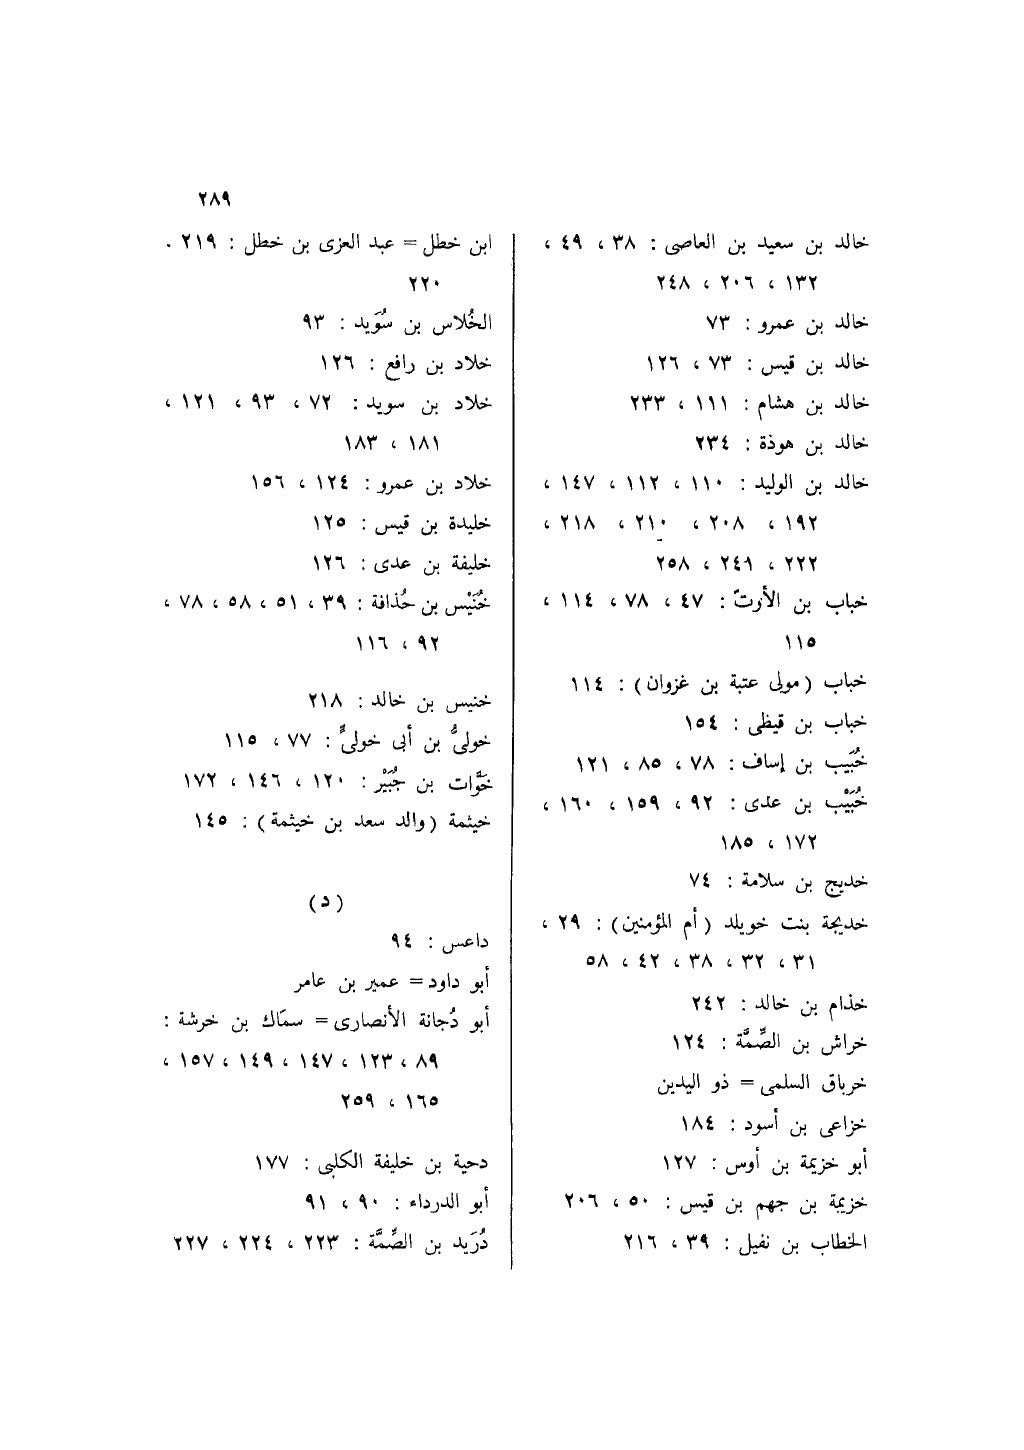 ٢٨٩
خالد بن سعيد بن العاصى : ٣٨ ، ٤٩ ،
١٣٢ ، ٢٠٦ ، ٢٤٨
خالد بن عمرو : ٧٣
خالد بن قيس : ٧٣ ، ١٢٦
خالد بن هشام : ١١١ ، ٢٣٣
خالد بن هوذة : ٢٣٤
خالد بن الوليد : ١١٠ ، ١١٢ ، ١٤٧ ،
١٩٢ ، ٢٠٨ ، ٢١٠ ، ٢١٨ ،
٢٢٢ ، ٢٤١ ، ٢٥٨
خباب بن الأرتّ : ٤٧ ، ٧٨ ، ١١٤ ،
١١٥
خباب (مولى عتبة بن غزوان) : ١١٤
خباب بن قيظى : ١٥٤
خُبَيب بن إساف : ٧٨ ، ٨٥ ، ١٢١
خُبَيْب بن عدى : ٩٢ ، ١٥٩ ، ١٦٠ ،
١٧٢ ، ١٨٥
خديج بن سلامة : ٧٤
خديجة بنت خويلد (أم المؤمنين) : ٢٩ ،
٣١ ، ٣٢ ، ٣٨ ، ٤٢ ، ٥٨
خذام بن خالد : ٢٤٢
خراش بن الصِّمَّة : ١٢٤
خرباق السلمى = ذو اليدين
خزاعى بن أسود : ١٨٤
أبو خزيمة بن أوس : ١٢٧
خزيمة بن جهم بن قيس : ٥٠ ، ٢٠٦
الخطاب بن نفيل : ٣٩ ، ٢١٦
ابن خطل = عبد العزى بن خطل : ٢١٩ .
٢٢٠
الخُلاس بن سُوَيد : ٩٣
خلاد بن رافع : ١٢٦
خلاد بن سويد : ٧٢ ، ٩٣ ، ١٢١ ،
١٨١ ، ١٨٣
خلاد بن عمرو : ١٢٤ ، ١٥٦
خليدة بن قيس : ١٢٥
خليفة بن عدى : ١٢٦
خُنَيْس بن حُذافة : ٣٩ ، ٥١ ، ٥٨ ، ٧٨ ،
٩٢ ، ١١٦
خنيس بن خالد : ٢١٨
خولىُّ بن أبى خولىٍّ : ٧٧ ، ١١٥
خَوَّات بن جُبَيْر : ١٢٠ ، ١٤٦ ، ١٧٢
خيثمة (والد سعد بن خيثمة) : ١٤٥
(د)
داعس : ٩٤
أبو داود = عمير بن عامر
أبو دُجانة الأنصارى = سمَاك بن خرشة :
٨٩ ، ١٢٣ ، ١٤٧ ، ١٤٩ ، ١٥٧ ،
١٦٥ ، ٢٥٩
دحية بن خليفة الكلبى : ١٧٧
أبو الدرداء : ٩٠ ، ٩١
دُرَيد بن الصِّمَّة : ٢٢٣ ، ٢٢٤ ، ٢٢٧